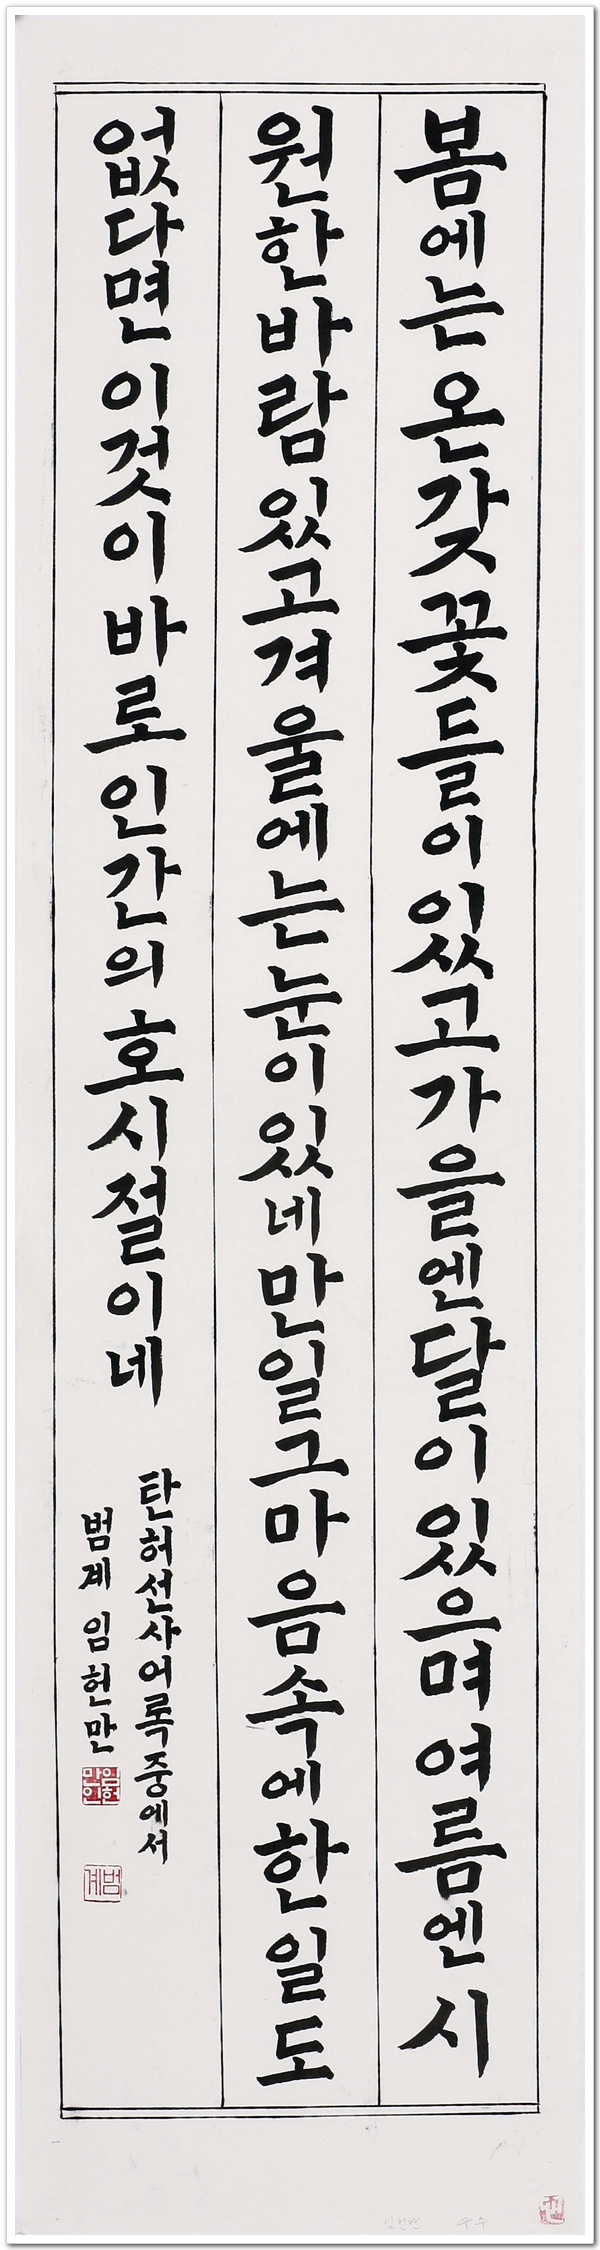 봄에는온갖꽃들이있고가을엔달이있으며여름엔시
원한바람있고겨울에는눈이있네만일그마음속에한일도
없다면이것이바로인간의호시절이네
탄허선사어록중에서
범계임헌만
임헌만인
범계
임헌만 우수